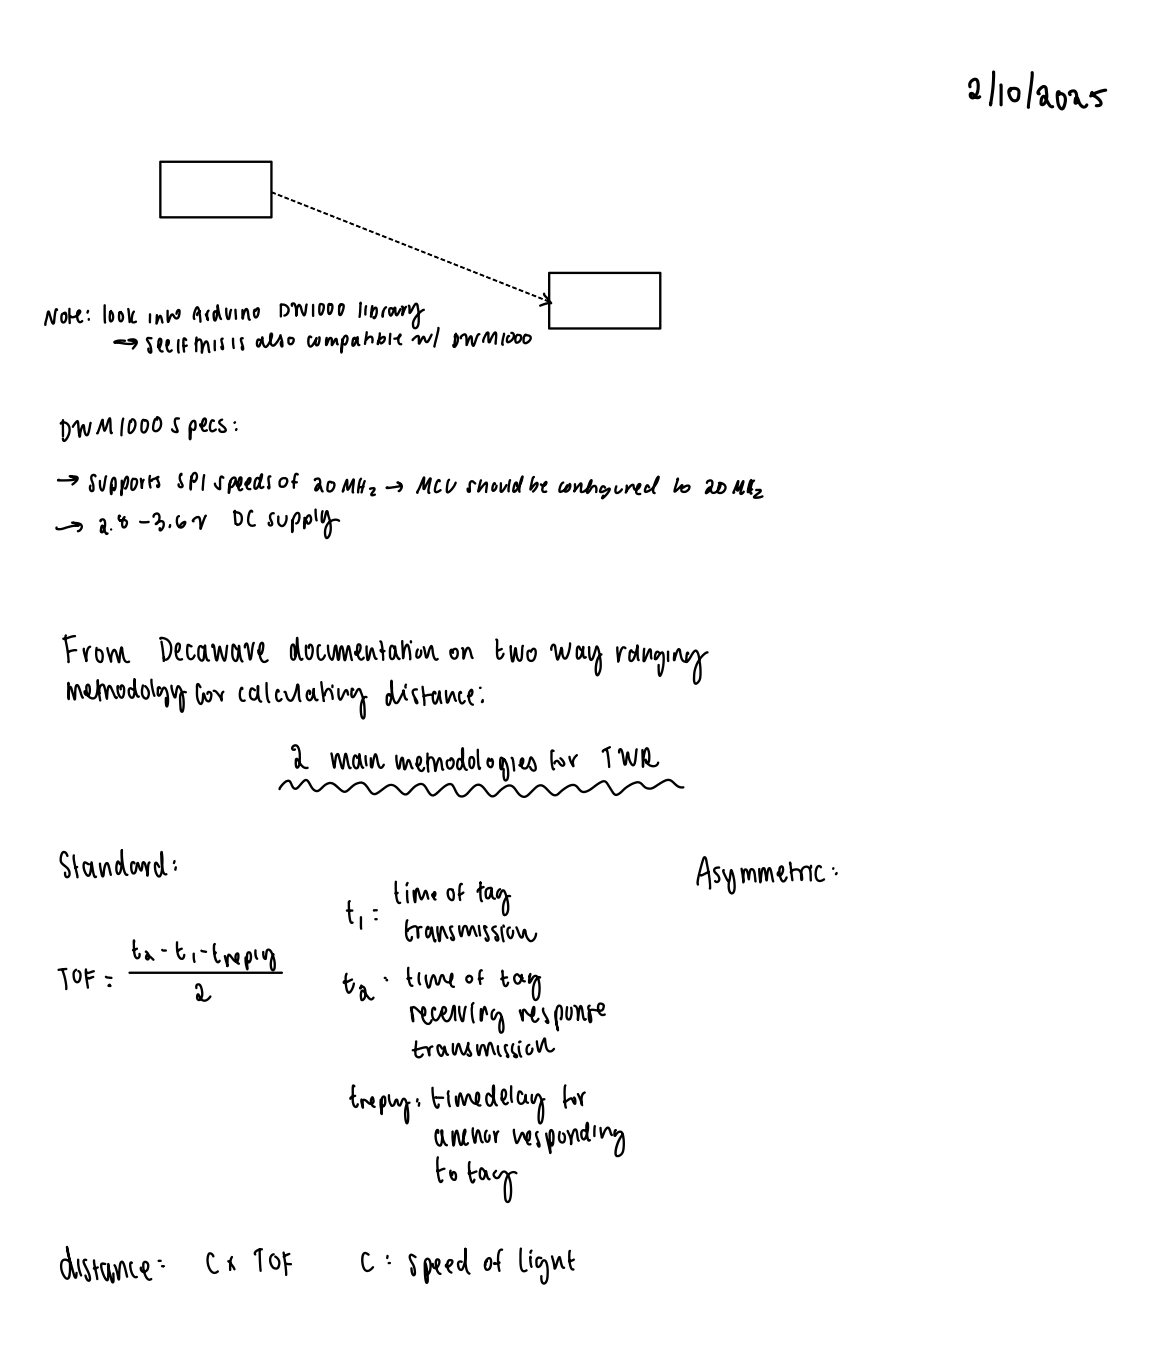 2/10/2025
Note: look into Arduino DW1000 library
→ see if this is also compatible w/ DWM1000
DWM1000 specs:
→ supports SPI speeds of 20 MHz → MCU should be configured to 20 MHz
→ 2.8-3.6V DC supply
From Decawave documentation on two way ranging
methodolgy for calculating distance:
2 main methodologies for TWR
Standard:
TOF = (t2 - t1 - treply) / 2
t1 = time of tag
transmission
t2 : time of tag
receiving response
transmission
treply : time delay for
anchor responding
to tag
Asymmetric :
distance = C x TOF C : speed of light